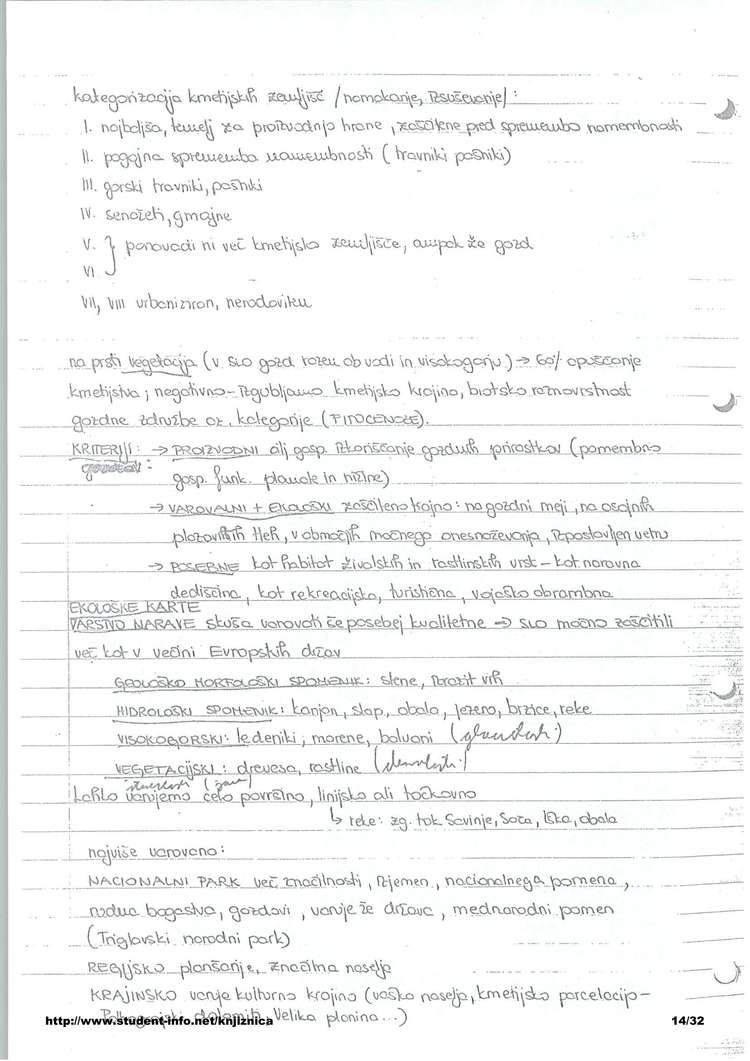 kategorizacija kmetijskih zemljišč /namakanje, izsuševanje/:
I. najboljša, temelj za proizvodnjo hrane, zaščitene pred spremembo namembnosti
II. pogojna sprememba namembnosti (travniki pašniki)
III. gorski travniki, pašniki
IV. senožeti, gmajne
V. } ponavadi ni več kmetijsko zemljišče, ampak že gozd
VI
VII, VIII urbaniziran, nerodoviten
na prsti vegetacija (v SLO gozd razen ob vodi in visokogorju) → 60% opuščanje
kmetijstva; negativno – izgubljamo kmetijsko krajino, biotsko raznovrstnost
gozdne združbe oz. kategorije (FITOCENOZE).
KRITERIJI: → PROIZVODNI ali gosp. izkoriščanje gozdnih prirastkov (pomembno
gozdov:
gosp. funk. planote in nižine)
→ VAROVALNI + EKOLOŠKI zaščiteno krajno: na gozdni meji, na osojnih
plazovitih tleh, v območjih močnega onesnaževanja, izpostavljen vetru
→ POSEBNE kot habitat živalskih in rastlinskih vrst – kot naravna
dediščina, kot rekreacijska, turistična, vojaško obrambna
EKOLOŠKE KARTE
VARSTVO NARAVE skuša varovati še posebej kvalitetne → SLO močno zaščitili
več kot v večini Evropskih držav
GEOLOŠKO MORFOLOŠKI SPOMENIK: stene, vrh
HIDROLOŠKI SPOMENIK: kanjon, slap, obala, jezero, brzice, reke
VISOKOGORSKI: ledeniki, morene, balvani
VEGETACIJSKI: drevesa, rastline
Lahko varujemo celo površino, linijsko ali točkovno
↳ reke: zg. tok Savinje, Soča, Iška, obala
najviše varovano:
NACIONALNI PARK več značilnosti, izjemen, nacionalnega pomena,
rudna bogastva, gozdovi, varuje že država, mednarodni pomen
(Triglavski narodni park)
REGIJSKO planšarije, značilna naselja
KRAJINSKO varuje kulturno krajino (vaško naselje, kmetijsko parcelacijo –
Polhograjski dolomiti, Velika planina...)
http://www.student-info.net/knjiznica
14/32